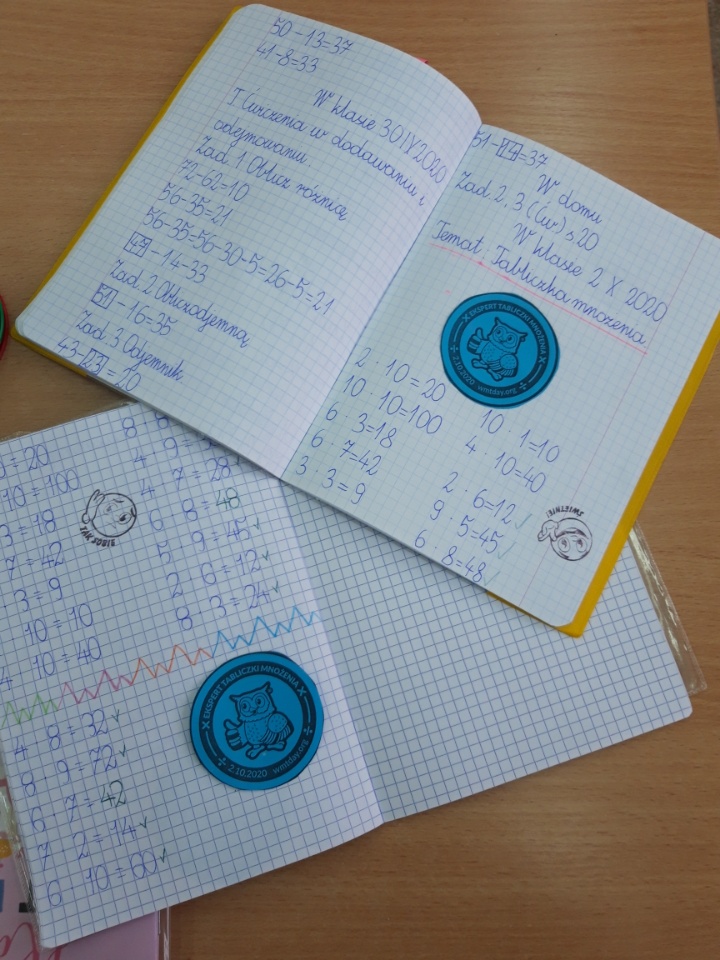 50-13=37
41-8=33
W klasie 30 IX 2020
I Ćwiczenia w dodawaniu i
odejmowaniu.
Zad. 1 Oblicz różnicę
72-62=10
56-35=21
56-35=56-30-5=26-5=21
47-14=33
Zad 2 Oblicz odjemną
51-16=35
Zad. 3 Odjemnik.
43-23=20
51-14=37
W domu
Zad 2, 3 (ćw) s 20
W klasie 2 X 2020
Temat: Tabliczka mnożenia
X EKSPERT TABLICZKI MNOŻENIA X
÷ 2.10.2020 wmtday.org ÷
2 · 10=20
10 · 10=100
6 · 3=18
6 · 7=42
3 · 3=9
10 · 1=10
4 · 10=40
2 · 6=12 ✓
9 · 5=45 ✓
6 · 8=48 ✓
ŚWIETNIE!
=20
10=100
3=18
7=42
· 3=9
10=10
4 10=40
8 · 
4 · 9=
4 · 7=28
6 · 8=48
5 · 9=45 ✓
2 · 6=12 ✓
8 · 3=24 ✓
TAK SOBIE
4 8=32 ✓
8 · 9=72 ✓
6 · 7=42
7 2=14 ✓
6 · 10=60 ✓
X EKSPERT TABLICZKI MNOŻENIA X
÷ 2.10.2020 wmtday.org ÷